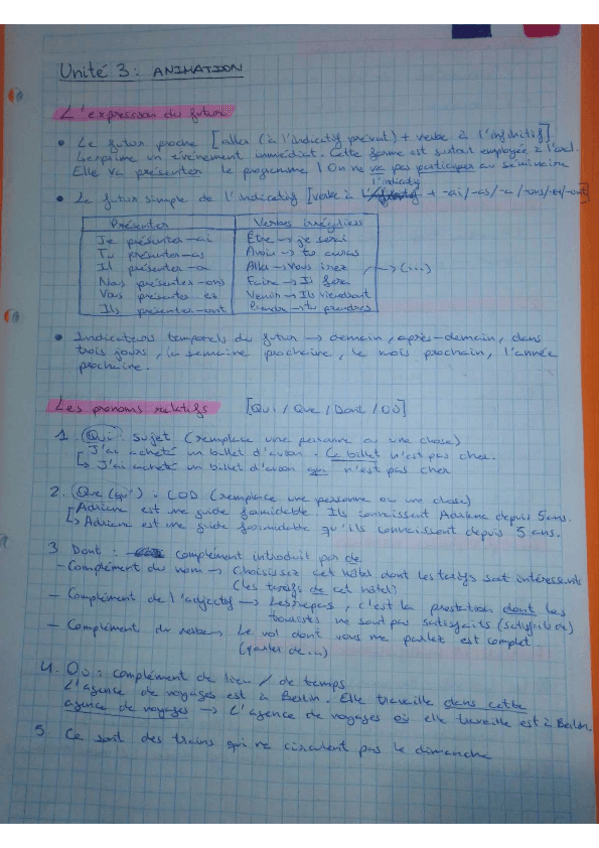 Unité 3: ANIMATION
L'expression du futur
• Le futur proche [aller (à l'indicatif présent) + verbe à l'infinitif].
Il exprime un événement immédiat. Cette forme est surtout employée à l'oral.
Elle va présenter le programme / On ne va pas participer au séminaire
l'indicatif
• Le futur simple de l'indicatif [verbe à + -ai/-as/-a/-ons/-ez/-ont]
Présenter Verbes irréguliers
Je présenter-ai Être → je serai
Tu présenter-as Avoir → tu auras
Il présenter-a Aller → Vous irez → (...)
Nous présenter-ons Faire → Il fera
Vous présenter-ez Venir → Ils viendront
Ils présenter-ont Prendre → tu prendras
• Indicateurs temporels du futur → demain, après-demain, dans
trois jours, la semaine prochaine, le mois prochain, l'année
prochaine.
Les pronoms relatifs [Qui / Que / Dont / Où]
1. Qui : sujet (remplace une personne ou une chose)
J'ai acheté un billet d'avion. Ce billet n'est pas cher.
J'ai acheté un billet d'avion qui n'est pas cher
2. Que (qu') : COD (remplace une personne ou une chose)
Adriene est une guide formidable. Ils connaissent Adriene depuis 5 ans.
Adriene est une guide formidable qu'ils connaissent depuis 5 ans.
3 Dont : complément introduit par de
- Complément du nom → Choisissez cet hôtel dont les tarifs sont intéressants
(les tarifs de cet hôtel)
- Complément de l'adjectif → Les repas, c'est la prestation dont les
touristes ne sont pas satisfaits (satisfait de)
- Complément du Le vol dont vous me parlez est complet
(parler de...)
4. Où : complément de lieu / de temps
L'agence de voyages est à Berlin. Elle travaille dans cette
agence de voyages → L'agence de voyages où elle travaille est à Berlin.
5. Ce sont des trains qui ne circulent pas le dimanche